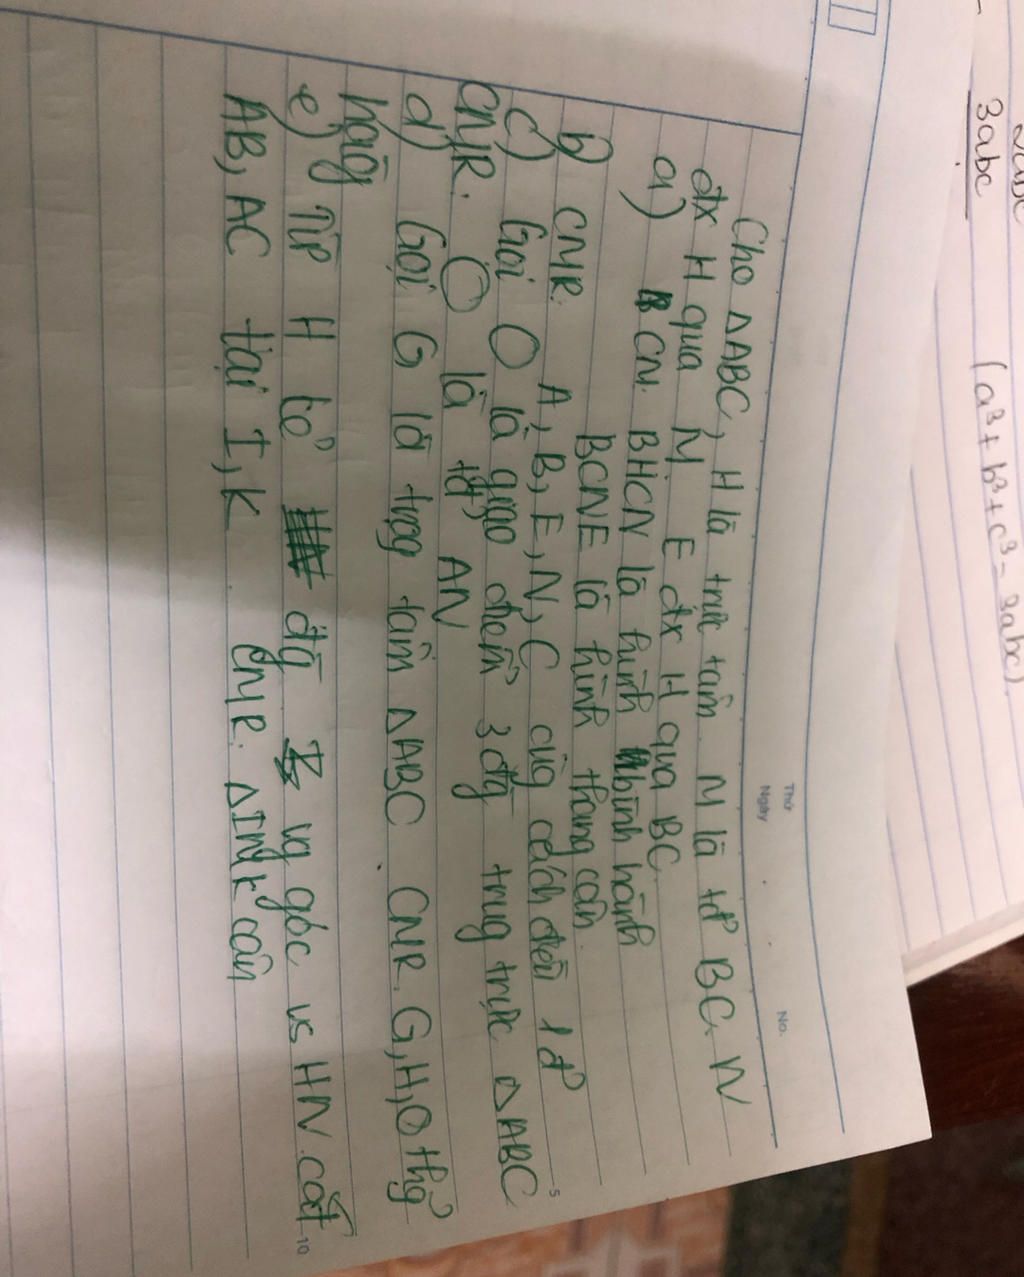 2abc
3abc
(a³ + b³ + c³ - 3abc)
Thứ
Ngày
No.
Cho ΔABC, H là trực tâm. M là tđ' BC. N
đx H qua M. E đx H qua BC
a) CM. BHCN là hình bình hành
BCNE là hình thang cân.
b) CMR. A, B, E, N, C cùg cách đều 1 đ'
c) Gọi O là giao điểm 3 đg trug trực ΔABC
CMR. O là tđ' AN
d) Gọi G là trọg tâm ΔABC. CMR. G, H, O thẳg
hàg
e) Từ H kẻ đg vg góc vs HN cắt
AB, AC tại I, K. CMR. ΔINK cân
5
10